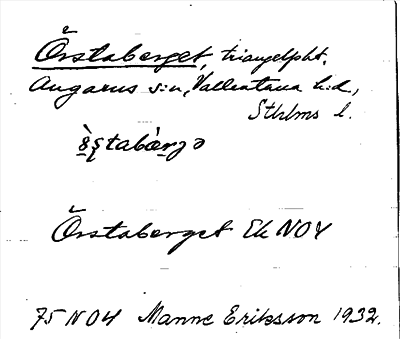 Örstaberget, triangelpkt.
Angarns s:n, Vallentuna h:d,
Sthlms l.
Örstaberget Ek NO4
75 NO4 Manne Eriksson 1932.